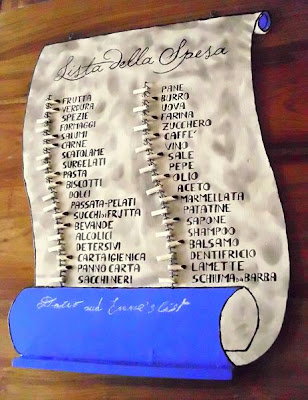 Lista della Spesa
FRUTTA
VERDURA
SPEZIE
FORMAGGI
SALUMI
CARNE
SCATOLAME
SURGELATI
PASTA
BISCOTTI
DOLCI
PASSATA-PELATI
SUCCHI di FRUTTA
BEVANDE
ALCOLICI
DETERSIVI
CARTA IGIENICA
PANNO CARTA
SACCHI NERI
PANE
BURRO
UOVA
FARINA
ZUCCHERO
CAFFE'
VINO
SALE
PEPE
OLIO
ACETO
MARMELLATA
PATATINE
SAPONE
SHAMPOO
BALSAMO
DENTIFRICIO
LAMETTE
SCHIUMA DA BARBA